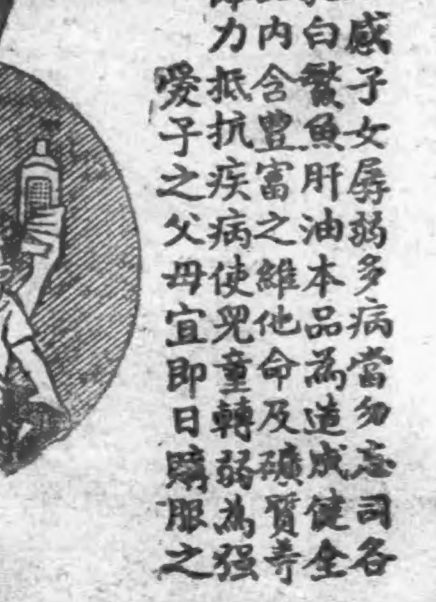 感子女孱弱多病當勿忘司各
白鰵魚肝油本品為造成健全
内含豐富之維他命及礦質等
力抵抗疾病使兒童轉弱為强
愛子之父母宜即日購服之